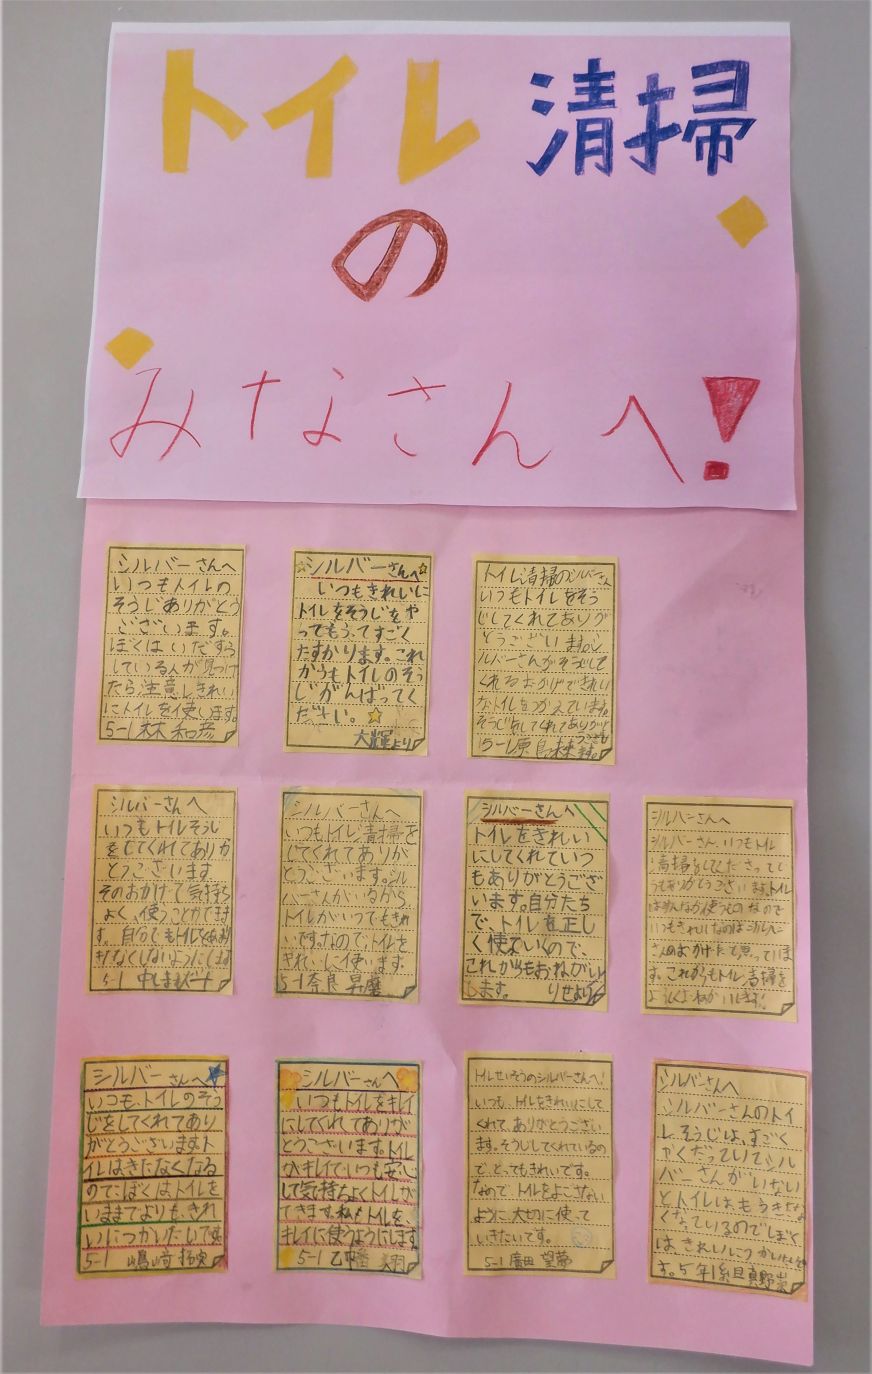 トイレ清掃
の
みなさんへ!
シルバーさんへ
いつもトイレの
そうじありがとう
ございます。
ぼくはいたずら
している人が見つけ
たら注意しきれい
にトイレを使います。
5-1 林 和彦
シルバーさんへ
いつもきれいに
トイレをそうじをや
ってもらってすごく
たすかります。これ
からもトイレのそう
じがんばってく
ださい。
大輝より
トイレ清掃のシルバーさん
いつもトイレをそう
じしてくれてありが
とうございますシ
ルバーさんがそうじして
くれるおかげできれい
なトイレをつかえています。
そうじをしてくれてありがとう
ございます。
5-1
シルバーさんへ
いつもトイレそうじ
をしてくれてありが
とうございます
そのおかげで気持ち
よく、使うことができま
す。自分でもトイレを
きたなくしないようにします
5-1
シルバーさんへ
いつもトイレ清掃を
してくれてありが
とうございます。シル
バーさんがいるから
トイレがいつでもきれ
いです。なので、トイレを
きれいに使います。
5-1 奈良 昇磨
シルバーさんへ
トイレをきれい
にしてくれていつ
もありがとうござ
います。自分たち
で、トイレを正し
く使っていくので、
これからもおねがい
します。 りせより
シルバーさんへ
シルバーさん、いつもトイレ
清掃をしてくださってど
うもありがとうございます。トイレ
はみんなが使うものなので
いつもきれいなのはシルバー
さんのおかげだと思っていま
す。これからもトイレ清掃を
よろしくおねがいします!
シルバーさんへ
いつも、トイレのそう
じをしてくれてあり
がとうございます。ト
イレはきたなくなる
のでぼくはトイレを
いままでよりも、きれ
いにつかいたいです。
5-1
シルバーさんへ
いつもトイレをキレイ
にしてくれてありが
とうございます。トイレ
がキレイで、いつも安心
して気持ちよくトイレが
できます。私もトイレを、
キレイに使うようにします
5-1
トイレせいそうのシルバーさんへ!
いつも、トイレをきれいにして
くれて、ありがとうござい
ます。そうじしてくれているの
で、とってもきれいです。
なので、トイレをよごさない
ように、大切に使って
いきたいです。
5-1 廣田 望夢
シルバーさんへ
シルバーさんのトイ
レそうじは、すごく
やくだっていてシル
バーさんがいない
とトイレは、もうきたな
くなっているのでぼく
は きれいにつかいたいで
す。5年1組 真野